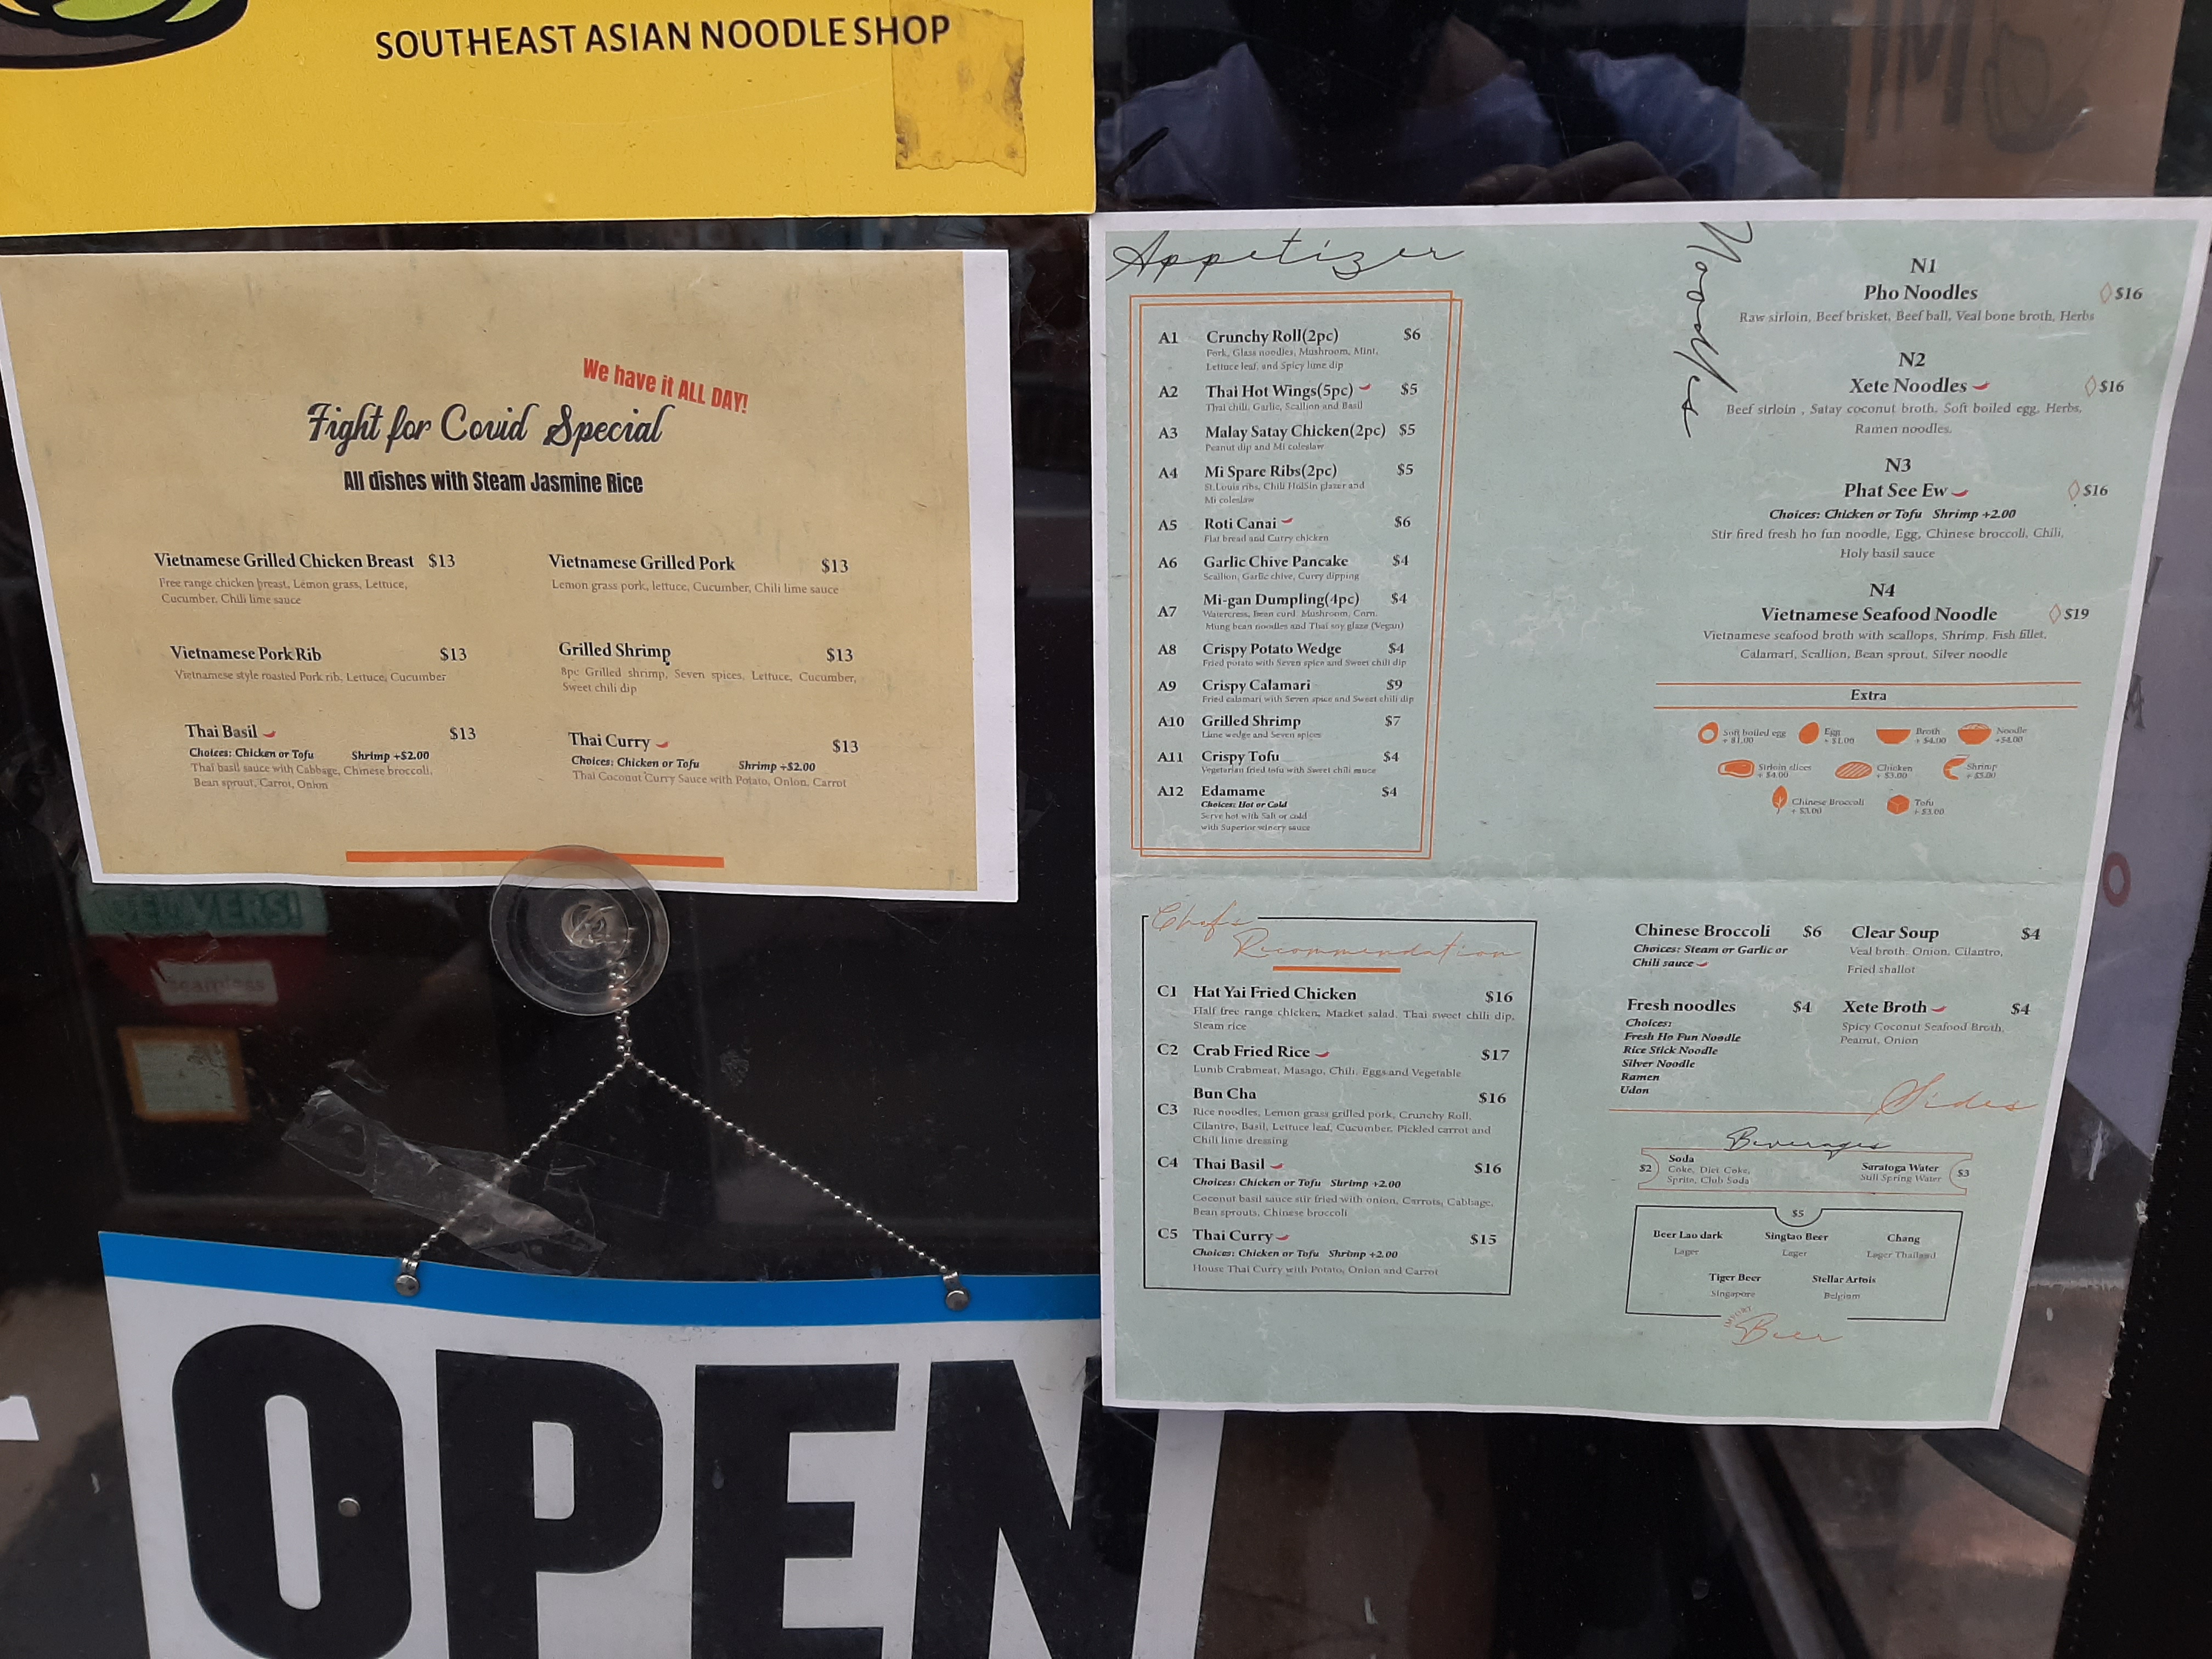 SOUTHEAST ASIAN NOODLE SHOP
We have it ALL DAY!
Fight for Covid Special
All dishes with Steam Jasmine Rice
Vietnamese Grilled Chicken Breast $13
Free range chicken breast, Lemon grass, Lettuce,
Cucumber, Chili lime sauce
Vietnamese Grilled Pork $13
Lemon grass pork, lettuce, Cucumber, Chili lime sauce
Vietnamese Pork Rib $13
Vietnamese style roasted Pork rib, Lettuce, Cucumber
Grilled Shrimp $13
8pc Grilled shrimp, Seven spices, Lettuce, Cucumber,
Sweet chili dip
Thai Basil $13
Choices: Chicken or Tofu Shrimp +$2.00
Thai basil sauce with Cabbage, Chinese broccoli,
Bean sprout, Carrot, Onion
Thai Curry $13
Choices: Chicken or Tofu Shrimp +$2.00
Thai Coconut Curry Sauce with Potato, Onion, Carrot
DELIVERS!
seamless
OPEN
Appetizer
A1 Crunchy Roll(2pc) $6
Pork, Glass noodles, Mushroom, Mint,
Lettuce leaf, and Spicy lime dip
A2 Thai Hot Wings(5pc) $5
Thai chili, Garlic, Scallion and Basil
A3 Malay Satay Chicken(2pc) $5
Peanut dip and Mi coleslaw
A4 Mi Spare Ribs(2pc) $5
St.Louis ribs, Chili HoiSin glazer and
Mi coleslaw
A5 Roti Canai $6
Flat bread and Curry chicken
A6 Garlic Chive Pancake $4
Scallion, Garlic chive, Curry dipping
A7 Mi-gan Dumpling(4pc) $4
Watercress, Bean curd, Mushroom, Corn,
Mung bean noodles and Thai soy glaze (Vegan)
A8 Crispy Potato Wedge $4
Fried potato with Seven spice and Sweet chili dip
A9 Crispy Calamari $9
Fried calamari with Seven spice and Sweet chili dip
A10 Grilled Shrimp $7
Lime wedge and Seven spices
A11 Crispy Tofu $4
Vegetarian fried tofu with Sweet chili sauce
A12 Edamame $4
Choices: Hot or Cold
Serve hot with Salt or cold
with Superior winery sauce
Noodles
N1
Pho Noodles $16
Raw sirloin, Beef brisket, Beef ball, Veal bone broth, Herbs
N2
Xete Noodles $16
Beef sirloin , Satay coconut broth, Soft boiled egg, Herbs,
Ramen noodles.
N3
Phat See Ew $16
Choices: Chicken or Tofu Shrimp +2.00
Stir fired fresh ho fun noodle, Egg, Chinese broccoli, Chili,
Holy basil sauce
N4
Vietnamese Seafood Noodle $19
Vietnamese seafood broth with scallops, Shrimp, Fish fillet,
Calamari, Scallion, Bean sprout, Silver noodle
Extra
Soft boiled egg + $1.00
Egg + $1.00
Broth + $4.00
Noodle + $4.00
Sirloin slices + $4.00
Chicken + $3.00
Shrimp + $5.00
Chinese Broccoli + $3.00
Tofu + $3.00
Chef's
Recommendation
C1 Hat Yai Fried Chicken $16
Half free range chicken, Market salad, Thai sweet chili dip,
Steam rice
C2 Crab Fried Rice $17
Lumb Crabmeat, Masago, Chili, Eggs and Vegetable
C3 Bun Cha $16
Rice noodles, Lemon grass grilled pork, Crunchy Roll,
Cilantro, Basil, Lettuce leaf, Cucumber, Pickled carrot and
Chili lime dressing
C4 Thai Basil $16
Choices: Chicken or Tofu Shrimp +2.00
Coconut basil sauce stir fried with onion, Carrots, Cabbage,
Bean sprouts, Chinese broccoli
C5 Thai Curry $15
Choices: Chicken or Tofu Shrimp +2.00
House Thai Curry with Potato, Onion and Carrot
Chinese Broccoli $6
Choices: Steam or Garlic or
Chili sauce
Clear Soup $4
Veal broth, Onion, Cilantro,
Fried shallot
Fresh noodles $4
Choices:
Fresh Ho Fun Noodle
Rice Stick Noodle
Silver Noodle
Ramen
Udon
Xete Broth $4
Spicy Coconut Seafood Broth,
Peanut, Onion
Sides
Beverages
$2 Soda
Coke, Diet Coke,
Sprite, Club Soda
Saratoga Water $3
Still Spring Water
$5
Beer Lao dark
Lager
Singtao Beer
Lager
Chang
Lager Thailand
Tiger Beer
Singapore
Stellar Artois
Belgium
IMPORT
Beer